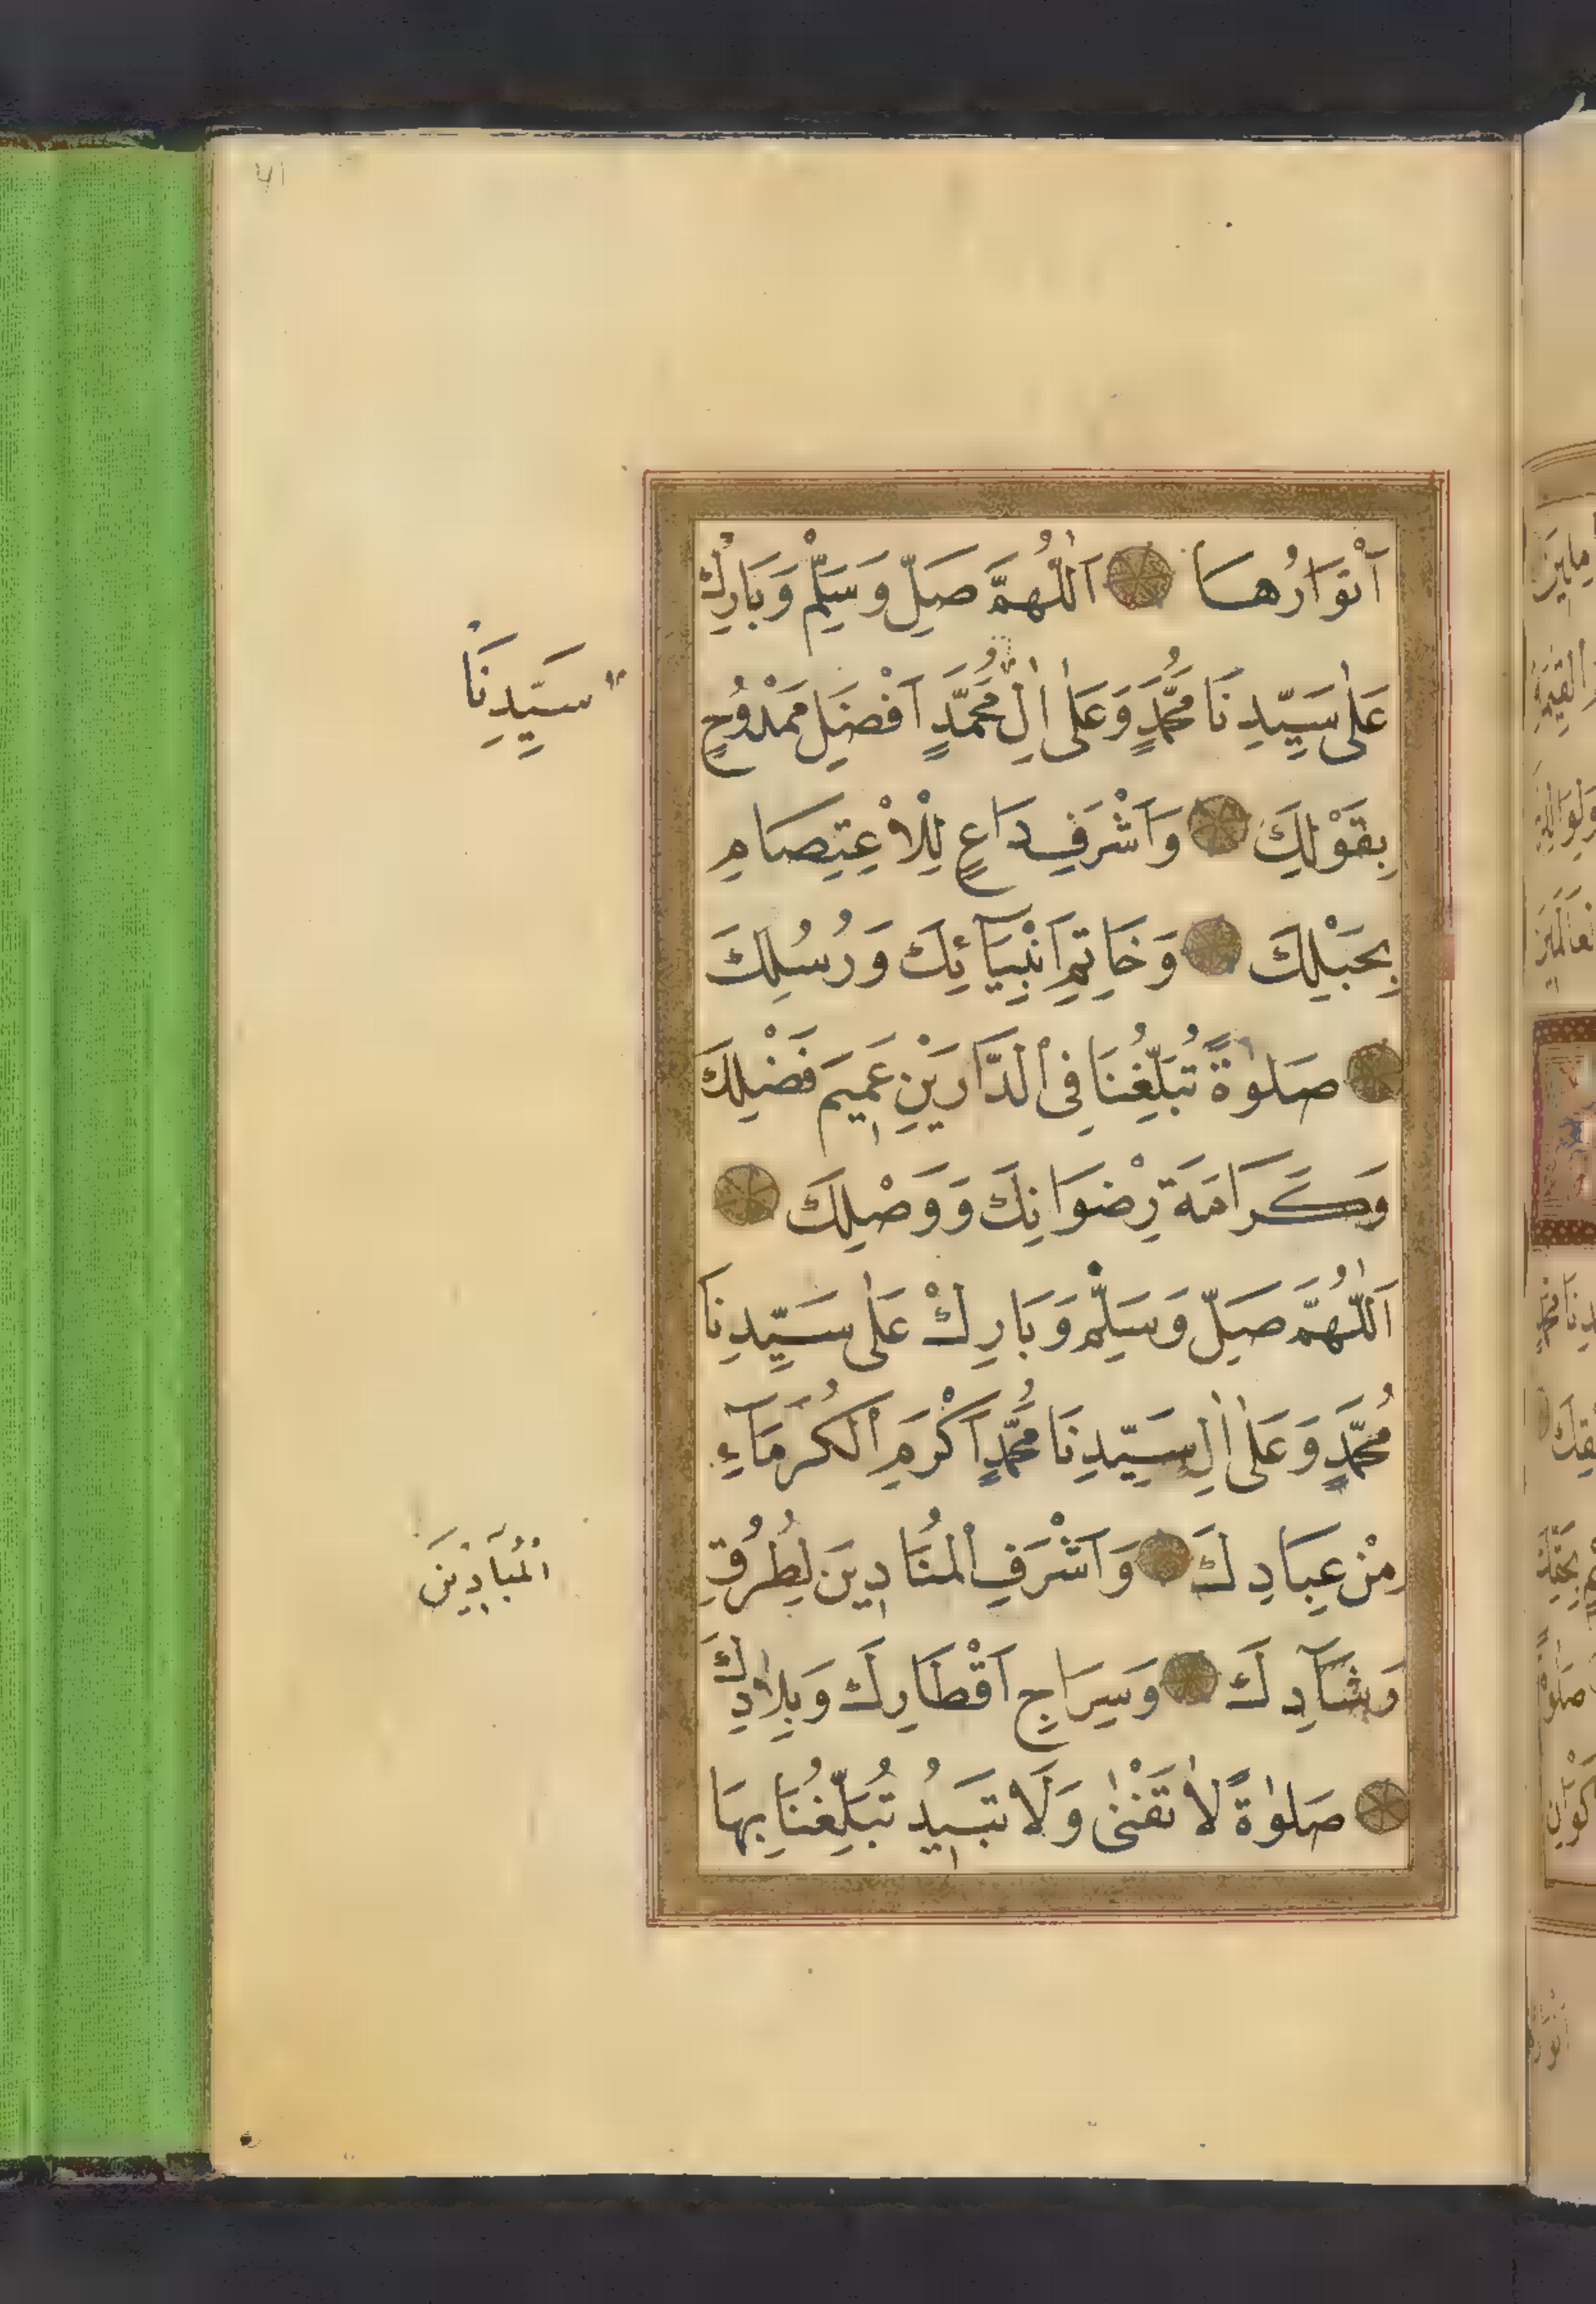 ٧١
اَنْوَارُهَا اَللّٰهُمَّ صَلِّ وَسَلِّمْ وَبَارِكْ
عَلٰى سَيِّدِنَا مُحَمَّدٍ وَعَلٰى اٰلِ مُحَمَّدٍ اَفْضَلِ مَمْدُوحٍ
سَيِّدِنَا
بِقَوْلِكَ وَاَشْرَفِ دَاعٍ لِلْاِعْتِصَامِ
بِحَبْلِكَ وَخَاتِمِ اَنْبِيَآئِكَ وَرُسُلِكَ
صَلٰوةً تُبَلِّغُنَا فِى الدَّارَيْنِ عَمِيمَ فَضْلِكَ
وَكَرَامَةَ رِضْوَانِكَ وَوَصْلِكَ
اَللّٰهُمَّ صَلِّ وَسَلِّمْ وَبَارِكْ عَلٰى سَيِّدِنَا
مُحَمَّدٍ وَعَلٰى اٰلِ سَيِّدِنَا مُحَمَّدٍ اَكْرَمِ الْكُرَمَآءِ
مِنْ عِبَادِكَ وَاَشْرَفِ الْمُنَادِينَ لِطُرُقِ
الْمُبَادِينَ
رَشَآدِكَ وَسِرَاجِ اَقْطَارِكَ وَبِلَادِكَ
صَلٰوةً لَا تَفْنٰى وَلَا تَبِيدُ تُبَلِّغُنَا بِهَا